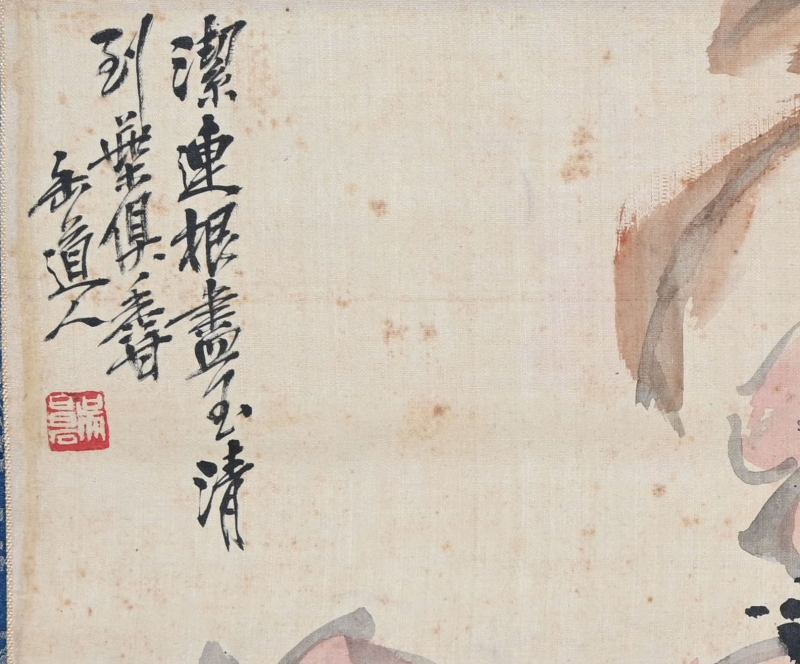 潔連根盡玉清
到葉俱香
缶道人
吳昌石